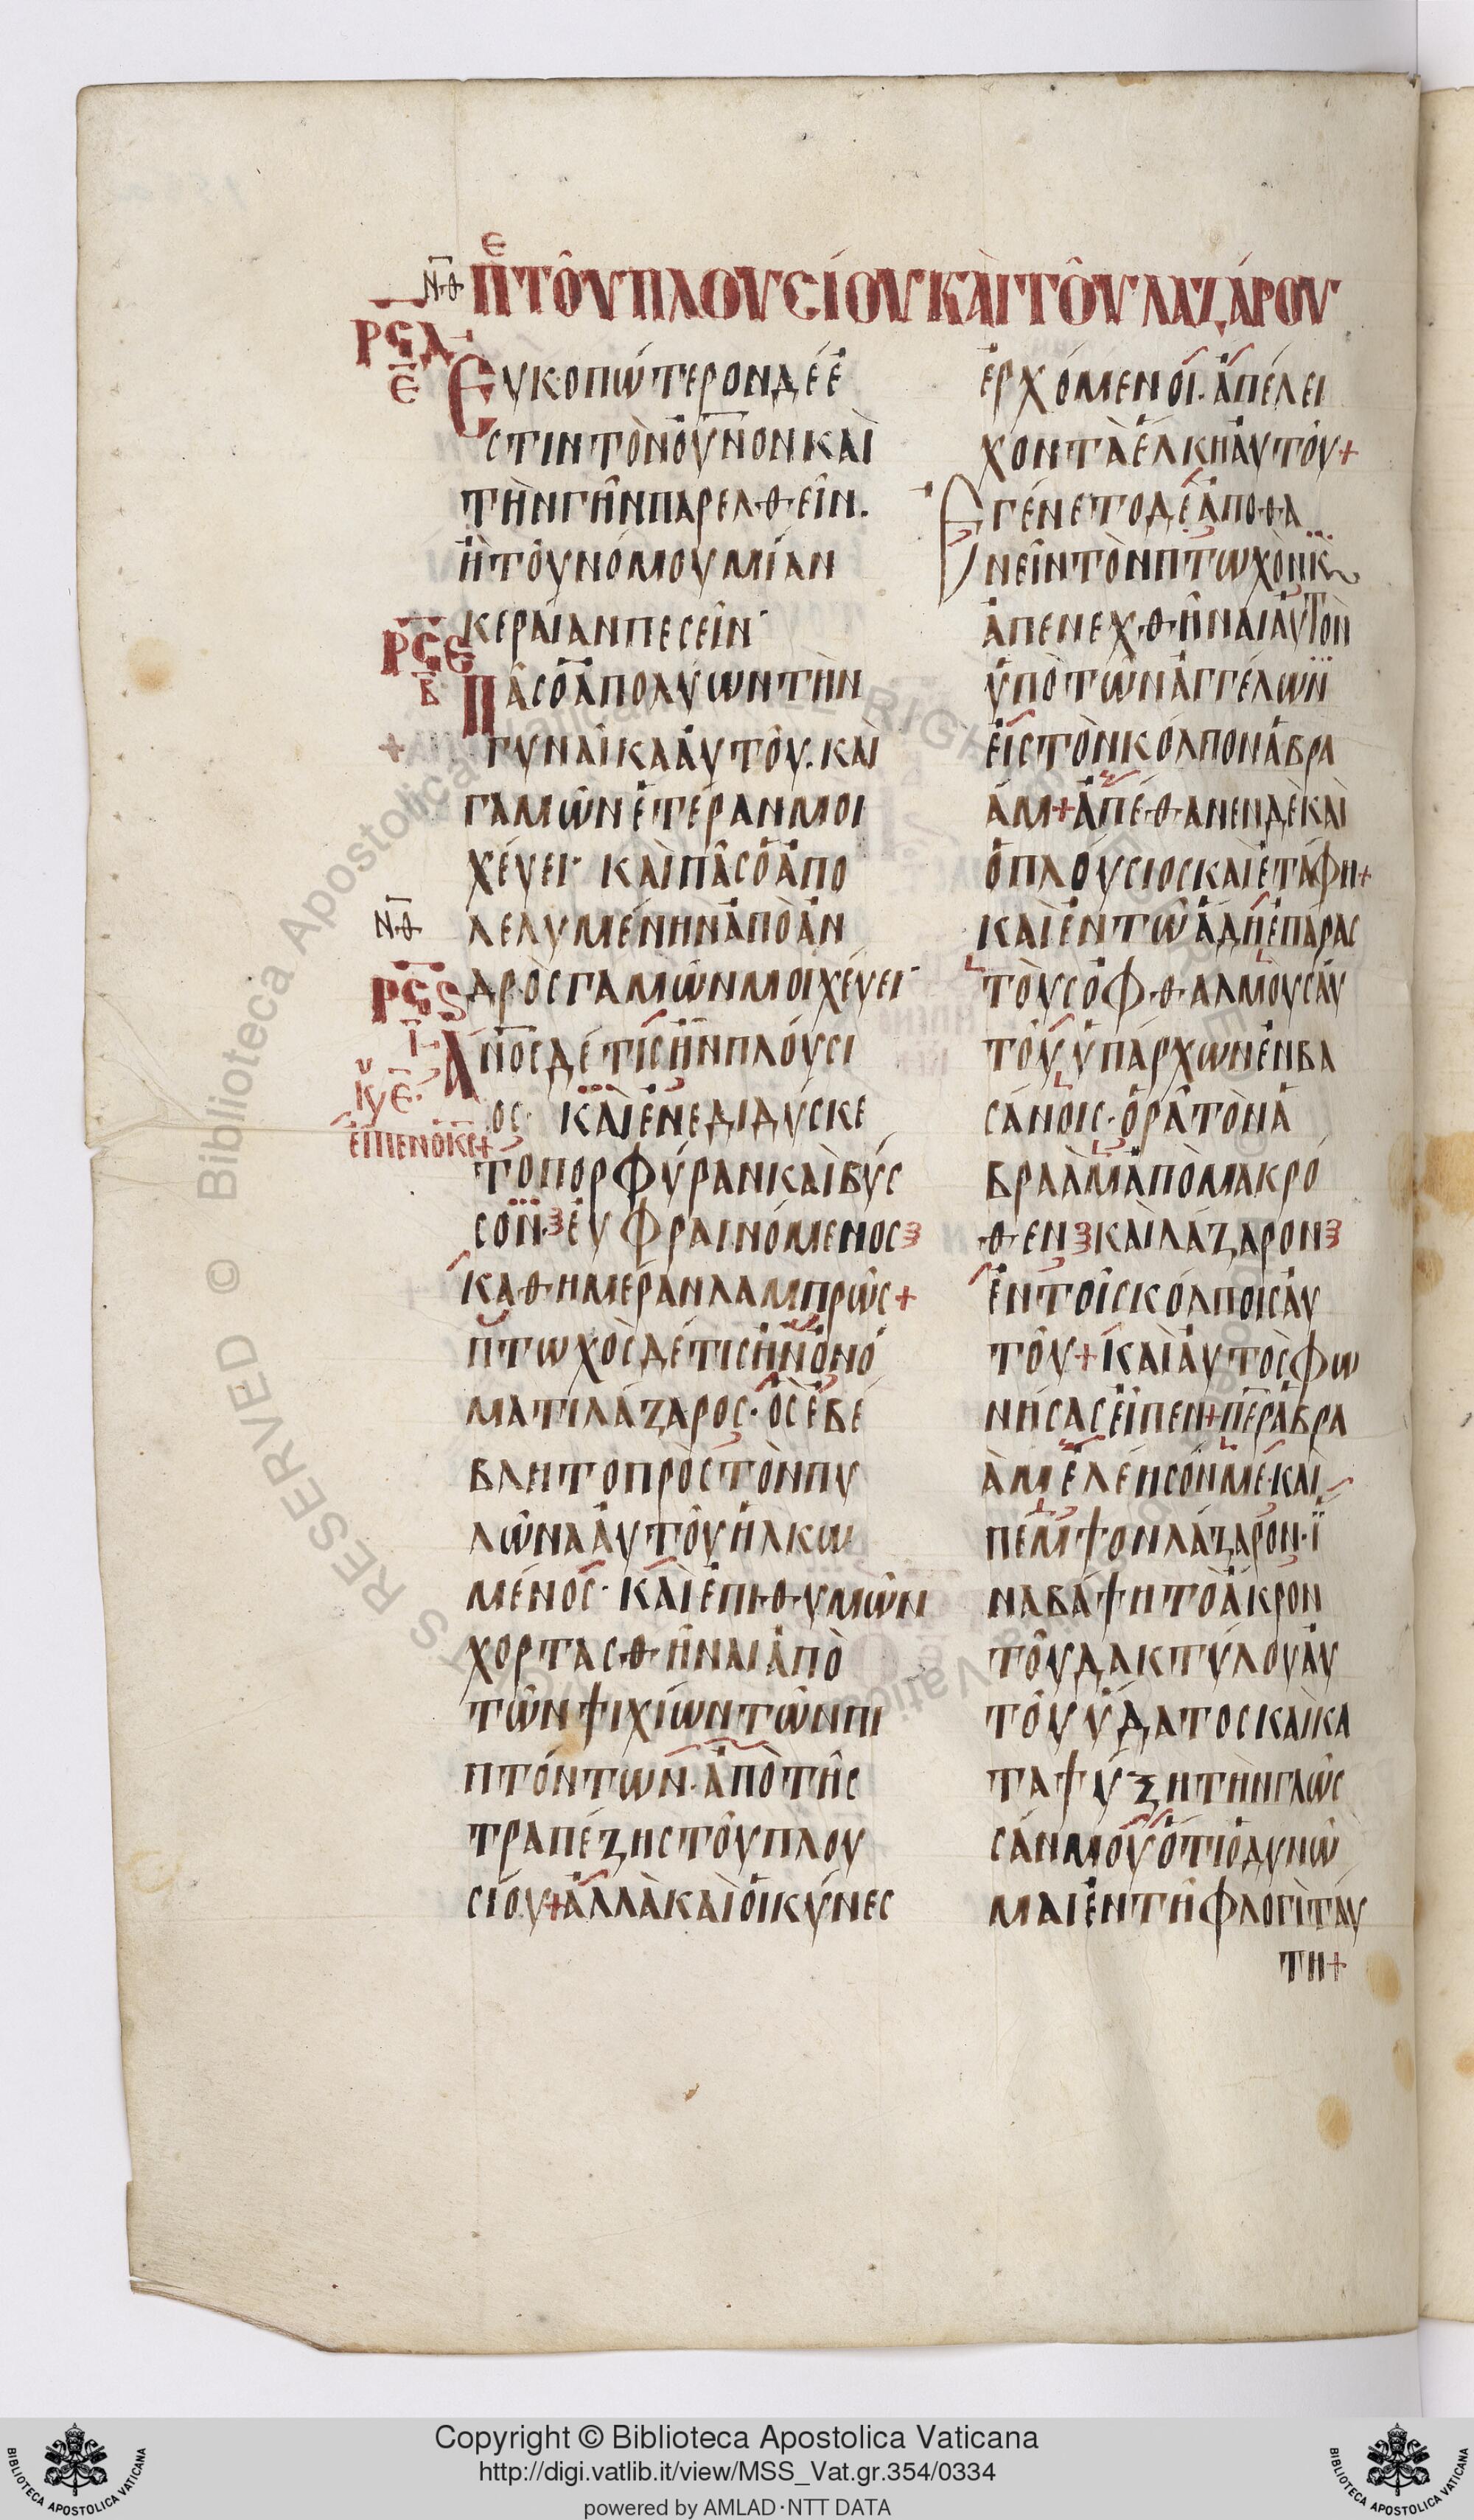 ΝΘ ΠΕ ΤΟΥ ΠΛΟΥΣΙΟΥ ΚΑΙ ΤΟΥ ΛΑΖΑΡΟΥ
ΡϚΔ
Ε
ΕΥΚΟΠΩΤΕΡΟΝΔΕΕ
ΣΤΙΝΤΟΝΟΥΝΟΝΚΑΙ
ΤΗΝΓΗΝΠΑΡΕΛΘΕΙΝ.
ΗΤΟΥΝΟΜΟΥΜΙΑΝ
ΚΕΡΑΙΑΝΠΕΣΕΙΝ·
ΡϚΕ
Β
ΠΑΣΟΑΠΟΛΥΩΝΤΗΝ
ΓΥΝΑΙΚΑΑΥΤΟΥ. ΚΑΙ
ΓΑΜΩΝΕΤΕΡΑΝΜΟΙ
ΧΕΥΕΙ· ΚΑΙΠΑΣΟΑΠΟ
ΝΘ
ΛΕΛΥΜΕΝΗΝΑΠΟΑΝ
ΔΡΟΣΓΑΜΩΝΜΟΙΧΕΥΕΙ·
ΡϚϚ
Ι
ΚΥ Ε·
ΕΙΠΕΝΟΚΣ+
ΑΝΟΣΔΕΤΙΣΗΝΠΛΟΥΣΙ
ΟΣ· ΚΑΙΕΝΕΔΙΔΥΣΚΕ
ΤΟΠΟΡΦΥΡΑΝΚΑΙΒΥΣ
ΣΟΝ·ΕΥΦΡΑΙΝΟΜΕΝΟΣ
ΚΑΘΗΜΕΡΑΝΛΑΜΠΡΩΣ+
ΠΤΩΧΟΣΔΕΤΙΣΗΝΟΝΟ
ΜΑΤΙΛΑΖΑΡΟΣ· ΟΣΕΒΕ
ΒΛΗΤΟΠΡΟΣΤΟΝΠΥ
ΛΩΝΑΑΥΤΟΥΗΛΚΩ
ΜΕΝΟΣ· ΚΑΙΕΠΙΘΥΜΩΝ
ΧΟΡΤΑΣΘΗΝΑΙΑΠΟ
ΤΩΝΨΙΧΙΩΝΤΩΝΠΙ
ΠΤΟΝΤΩΝ·ΑΠΟΤΗΣ
ΤΡΑΠΕΖΗΣΤΟΥΠΛΟΥ
ΣΙΟΥ+ΑΛΛΑΚΑΙΟΙΚΥΝΕΣ
ΕΡΧΟΜΕΝΟΙ. ΑΠΕΛΕΙ
ΧΟΝΤΑΕΛΚΗΑΥΤΟΥ+
ΕΓΕΝΕΤΟΔΕΑΠΟΘΑ
ΝΕΙΝΤΟΝΠΤΩΧΟΝΚ
ΑΠΕΝΕΧΘΗΝΑΙΑΥΤΟΝ
ΥΠΟΤΩΝΑΓΓΕΛΩΝ
ΕΙΣΤΟΝΚΟΛΠΟΝΑΒΡΑ
ΑΜ+ΑΠΕΘΑΝΕΝΔΕΚΑΙ
ΟΠΛΟΥΣΙΟΣΚΑΙΕΤΑΦΗ+
ΚΑΙΕΝΤΩΑΔΗΕΠΑΡΑΣ
ΤΟΥΣΟΦΘΑΛΜΟΥΣΑΥ
ΤΟΥΥΠΑΡΧΩΝΕΝΒΑ
ΣΑΝΟΙΣ·ΟΡΑΤΟΝΑ
ΒΡΑΑΜΑΠΟΜΑΚΡΟ
ΘΕΝΚΑΙΛΑΖΑΡΟΝ
ΕΝΤΟΙΣΚΟΛΠΟΙΣΑΥ
ΤΟΥ+ΚΑΙΑΥΤΟΣΦΩ
ΝΗΣΑΣΕΙΠΕΝ+ΠΕΡΑΒΡΑ
ΑΜΕΛΕΗΣΟΝΜΕ·ΚΑΙ
ΠΕΜΨΟΝΛΑΖΑΡΟΝ·Ϊ
ΝΑΒΑΨΗΤΟΑΚΡΟΝ
ΤΟΥΔΑΚΤΥΛΟΥΑΥ
ΤΟΥΥΔΑΤΟΣΚΑΙΚΑ
ΤΑΨΥΞΗΤΗΝΓΛΩΣ
ΣΑΝΜΟΥΟΤΙΟΔΥΝΩ
ΜΑΙΕΝΤΗΦΛΟΓΙΤΑΥ
ΤΗ+
Copyright © Biblioteca Apostolica Vaticana
http://digi.vatlib.it/view/MSS_Vat.gr.354/0334
powered by AMLAD·NTT DATA
BIBLIOTECA APOSTOLICA VATICANA
BIBLIOTECA APOSTOLICA VATICANA